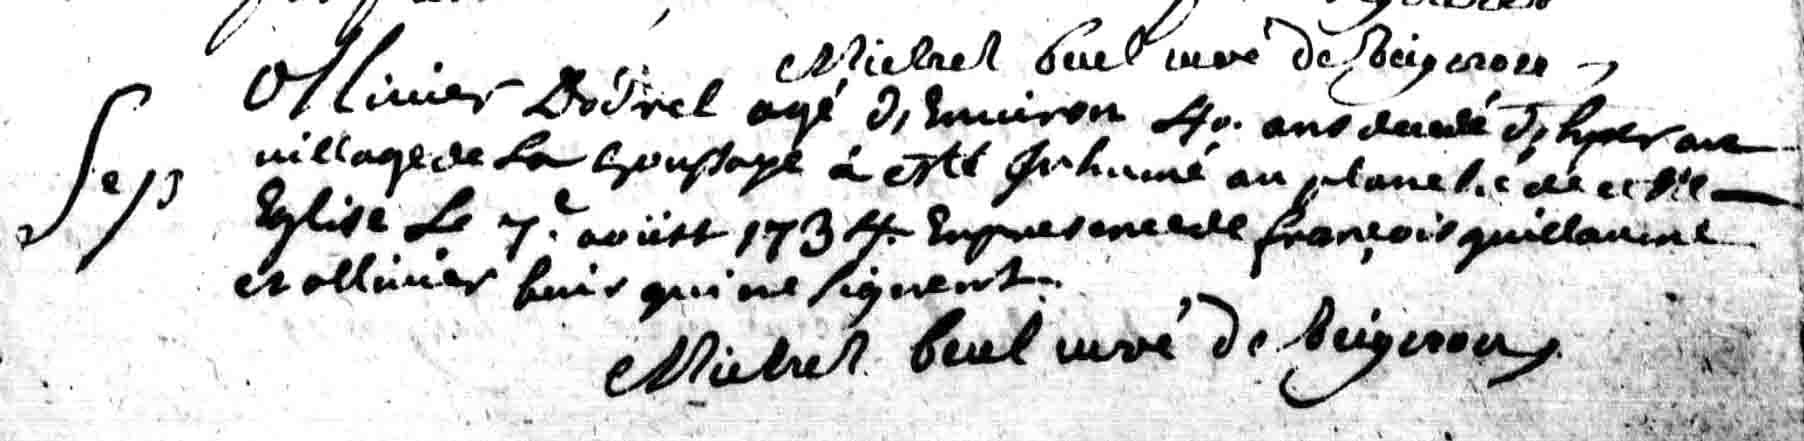 Michel buel curé de Beignon
Ollivier Dodrel agé d'Environ 40. ans decedé d'hyer au
Sep
village de La à esté Inhumé au planché de cette
Eglise Le 7e. aoüst 1734. En presence de françois guillaume
et ollivier buir qui ne signent.
Michel buel curé de beignon